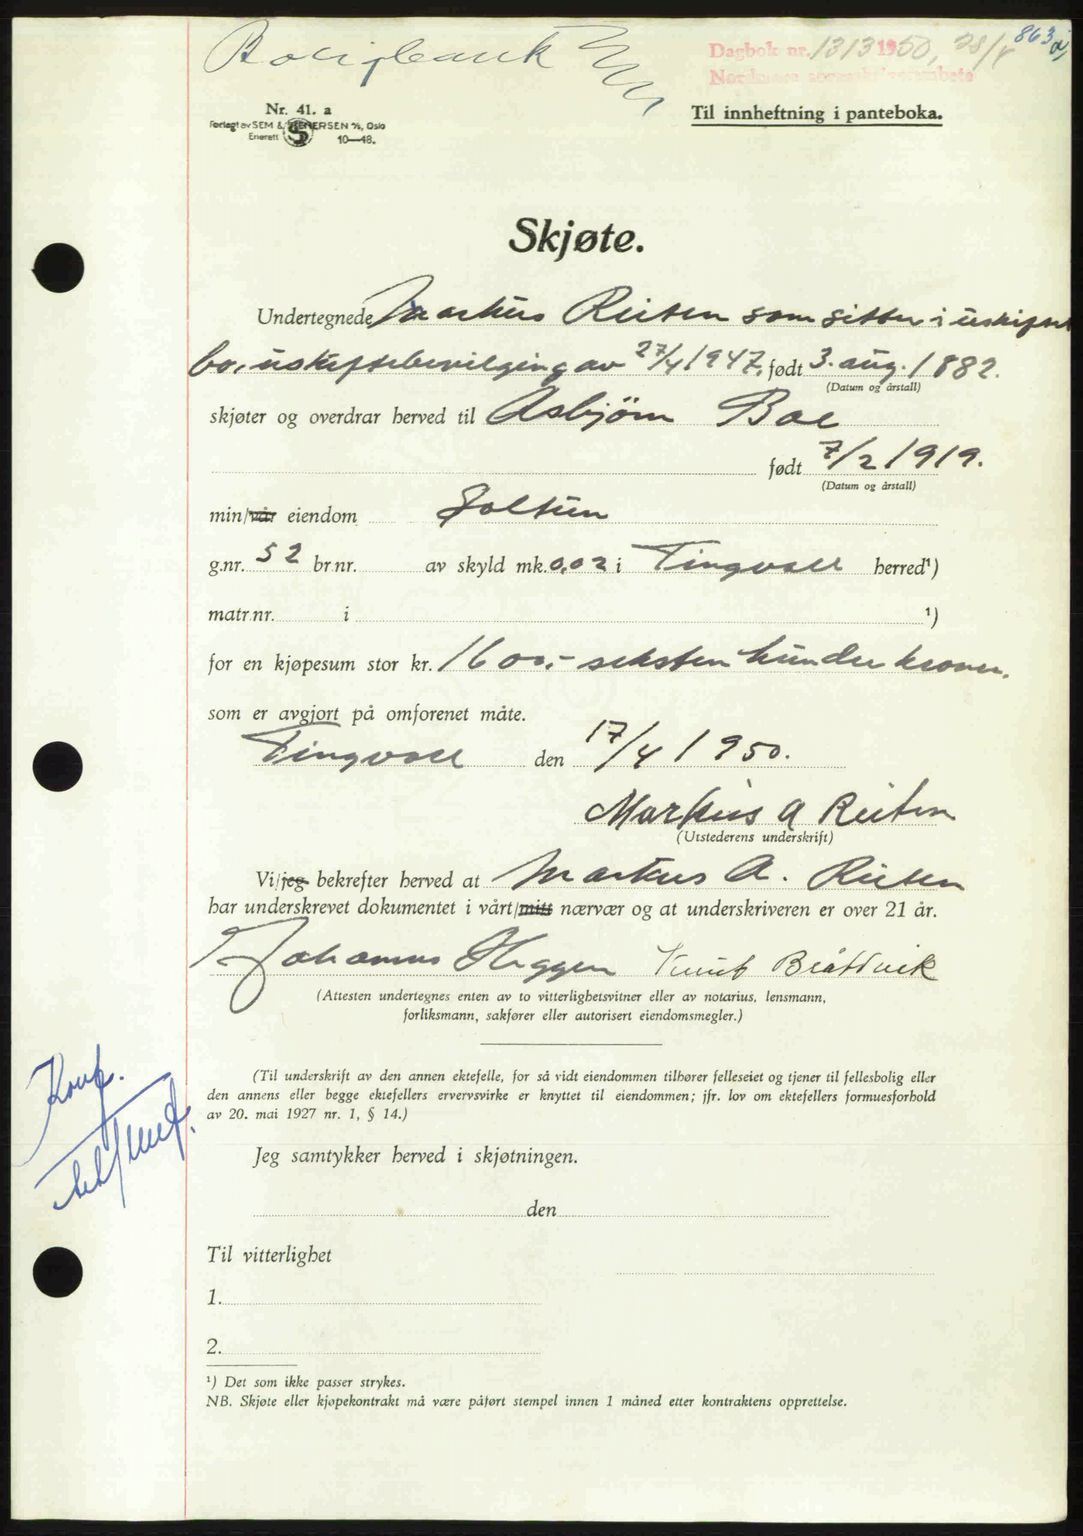 Boligbank
Dagbok nr. 1313 1950, 28/4
863
Nordmøre sorenskriverembete
Nr. 41. a
Forlagt av SEM & STENERSEN A/S, Oslo
Enerett 10—48.
Til innheftning i panteboka.
Skjøte.
Undertegnede Markus Reiten som sitter i uskiftet
bo, uskiftebevilging av 27/4 1947, født 3. aug. 1882.
(Datum og årstall)
skjøter og overdrar herved til Asbjørn Boe
født 7/2 1919.
(Datum og årstall)
min/vår eiendom Soltun
g.nr. 52 br.nr. av skyld mk. 0,02 i Tingvoll herred¹)
matr.nr. i ¹)
for en kjøpesum stor kr. 1600,- seksten hundre kroner.
som er avgjort på omforenet måte.
Tingvoll den 17/4 1950.
Markus A Reiten
(Utstederens underskrift)
Vi/jeg bekrefter herved at Markus A. Reiten
har underskrevet dokumentet i vårt/mitt nærvær og at underskriveren er over 21 år.
Johannes Heggem Knut Bråttvik
(Attesten undertegnes enten av to vitterlighetsvitner eller av notarius, lensmann,
forliksmann, sakfører eller autorisert eiendomsmegler.)
Konf.
(Til underskrift av den annen ektefelle, for så vidt eiendommen tilhører felleseiet og tjener til fellesbolig eller
den annens eller begge ektefellers ervervsvirke er knyttet til eiendommen; jfr. lov om ektefellers formuesforhold
av 20. mai 1927 nr. 1, § 14.)
Jeg samtykker herved i skjøtningen.
den
Til vitterlighet
1.
2.
¹) Det som ikke passer strykes.
NB. Skjøte eller kjøpekontrakt må være påført stempel innen 1 måned etter kontraktens opprettelse.